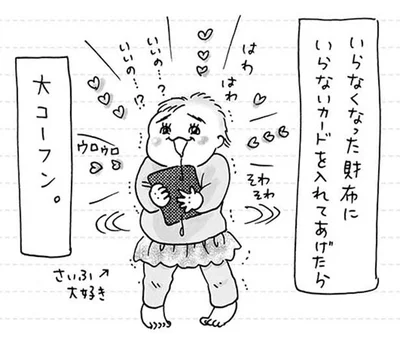 いらなくなった財布に
いらないカードを入れてあげたら
はわ
はわ
いいの…?
いいの…!?
そわ
そわ
ウロウロ
さいふ↗
大好き
大コーフン。